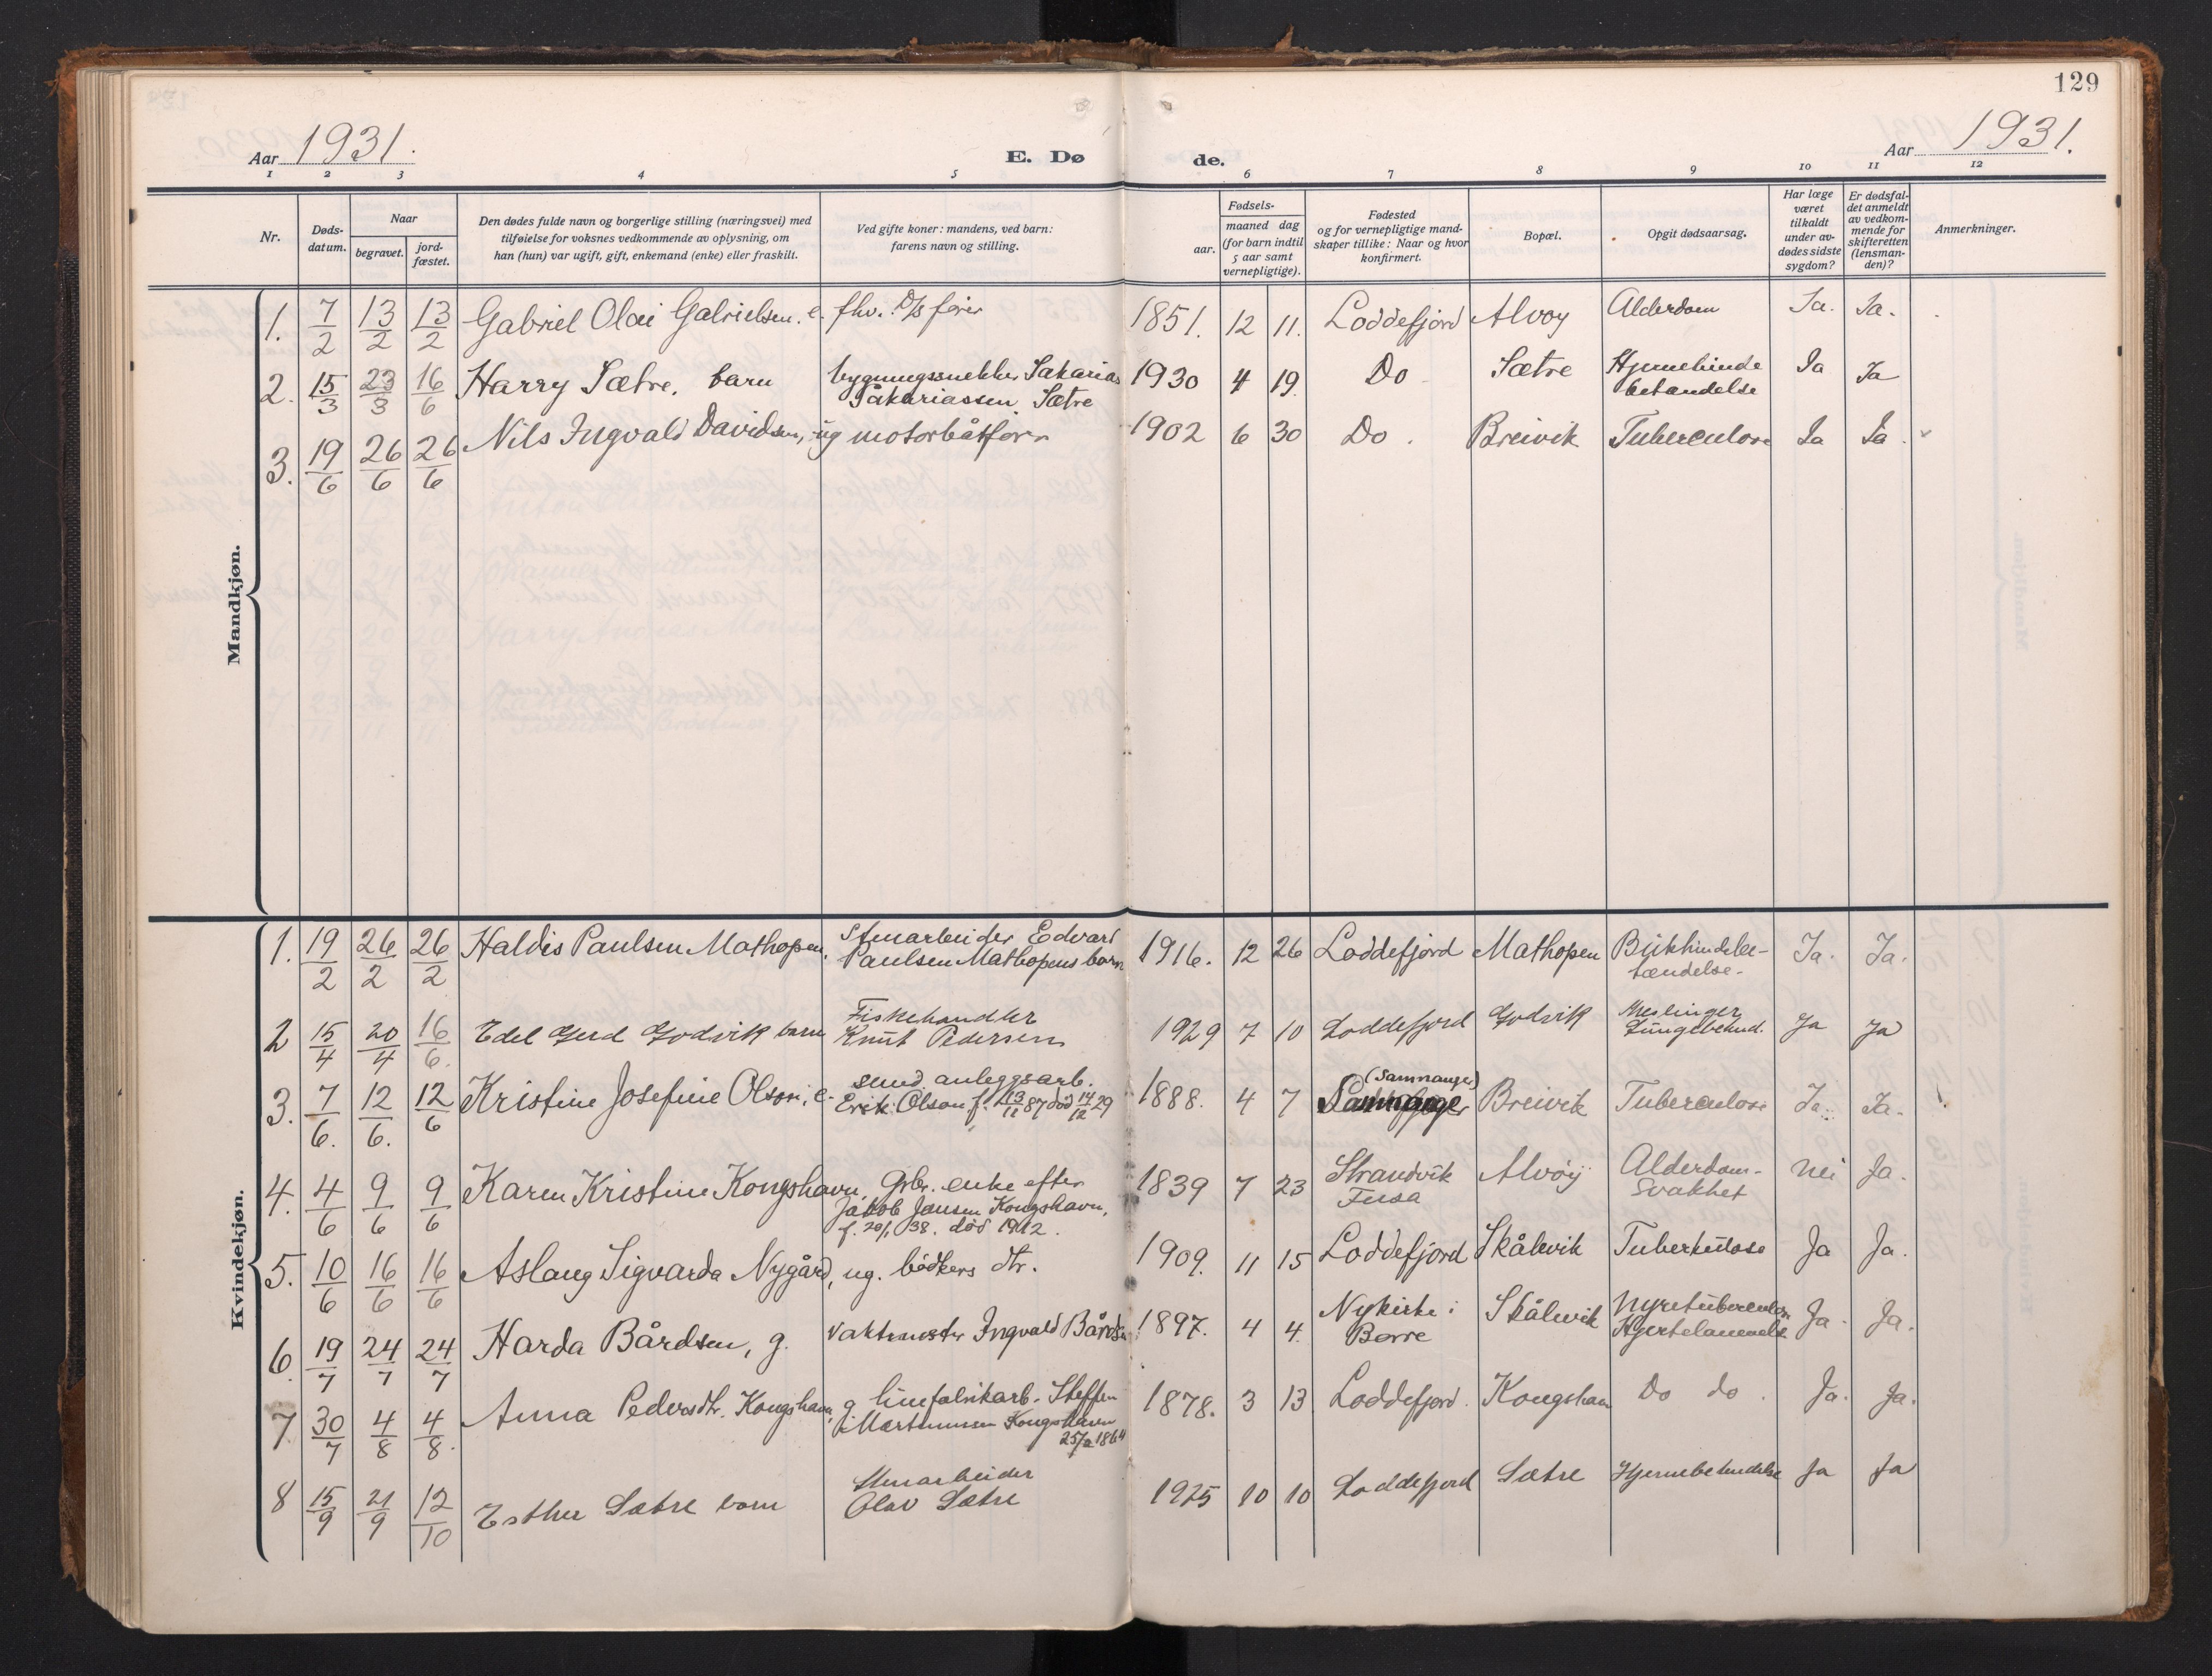 129
Aar 1931. E. Dø de. Aar 1931.
1 2 3 4 5 6 7 8 9 10 11 12
Nr.
Døds-
datum.
Naar
begravet.
jord-
fæstet.
Den dødes fulde navn og borgerlige stilling (næringsvei) med
tilføielse for voksnes vedkommende av oplysning, om
han (hun) var ugift, gift, enkemand (enke) eller fraskilt.
Ved gifte koner: mandens, ved barn:
farens navn og stilling.
Fødsels-
aar.
maaned dag
(for barn indtil
5 aar samt
vernepligtige).
Fødested
og for vernepligtige mand-
skaper tillike: Naar og hvor
konfirmert.
Bopæl.
Opgit dødsaarsag.
Har læge
været
tilkaldt
under av-
dødes sidste
sygdom?
Er dødsfal-
det anmeldt
av vedkom-
mende for
skifteretten
(lensman-
den)?
Anmerkninger.
Mandkjøn.
1. 7/2 13/2 13/2 Gabriel Olai Gabrielsen. e. fhv. D/s fører 1851. 12 11. Loddefjord Alvøy Alderdom Ja. Ja.
2. 15/3 23/3 16/6 Harry Sætre, barn bygningssnekker Sakarias
Sakariassen Sætre 1930 4 19. Do Sætre Hjernehinde
betændelse Ja Ja
3. 19/6 26/6 26/6 Nils Ingvald Davidsen, ug motorbåtfører 1902 6 30 Do. Breivik Tuberculose Ja Ja.
Kvindekjøn.
1. 19/2 26/2 26/2 Haldis Paulsen Mathopen, Stenarbeider Edvart
Paulsen Mathopens barn 1916. 12 26 Loddefjord Mathopen Bukhindebe-
tændelse. Ja. Ja.
2 15/4 20/4 16/6. Edel Gerd Godvik barn Fiskehandler
Knut Pedersen 1929 7 10 Loddefjord Godvik Meslinger
Lungebetænd. Ja Ja
3. 7/6. 12/6. 12/6 Kristine Josefine Olson, e. anleggsarb.
Erik Olson f. 13/11 87 död 14/12 29 1888. 4 7 (Samnanger)
Samnanger Breivik Tuberculose Ja. Ja.
4. 4/6 9/6 9/6 Karen Kristine Kongshavn, Gbr. enke efter
Jakob Jansen Kongshavn,
f. 20/1 38. död 1912. 1839 7 23 Strandvik
Fusa Alvøy Alderdom-
Svakhet Nei Ja.
5. 10/6 16/6 16/6 Aslaug Sigvarda Nygård, ug. bödkers dtr. 1909. 11 15 Loddefjord Skålevik Tuberkulose Ja Ja.
6. 19/7 24/7 24/7 Harda Bårdsen, g. vaktmester Ingvald Bårdsen 1897. 4 4. Nykirke i
Borre Skålevik Nyretuberculose
Hjertelammelse Ja. Ja.
7 30/7 4/8 4/8. Anna Pedersdtr. Kongshavn, g. Steffen
Martinussen Kongshavn
1864 1878. 3 13 Loddefjord. Kongshavn Do do. Ja. Ja.
8 15/9 21/9 12/10 Esther Sætre barn Stenarbeider
Olav Sætre 1925 10 10 Loddefjord Sætre Hjernebetendelse Ja Ja